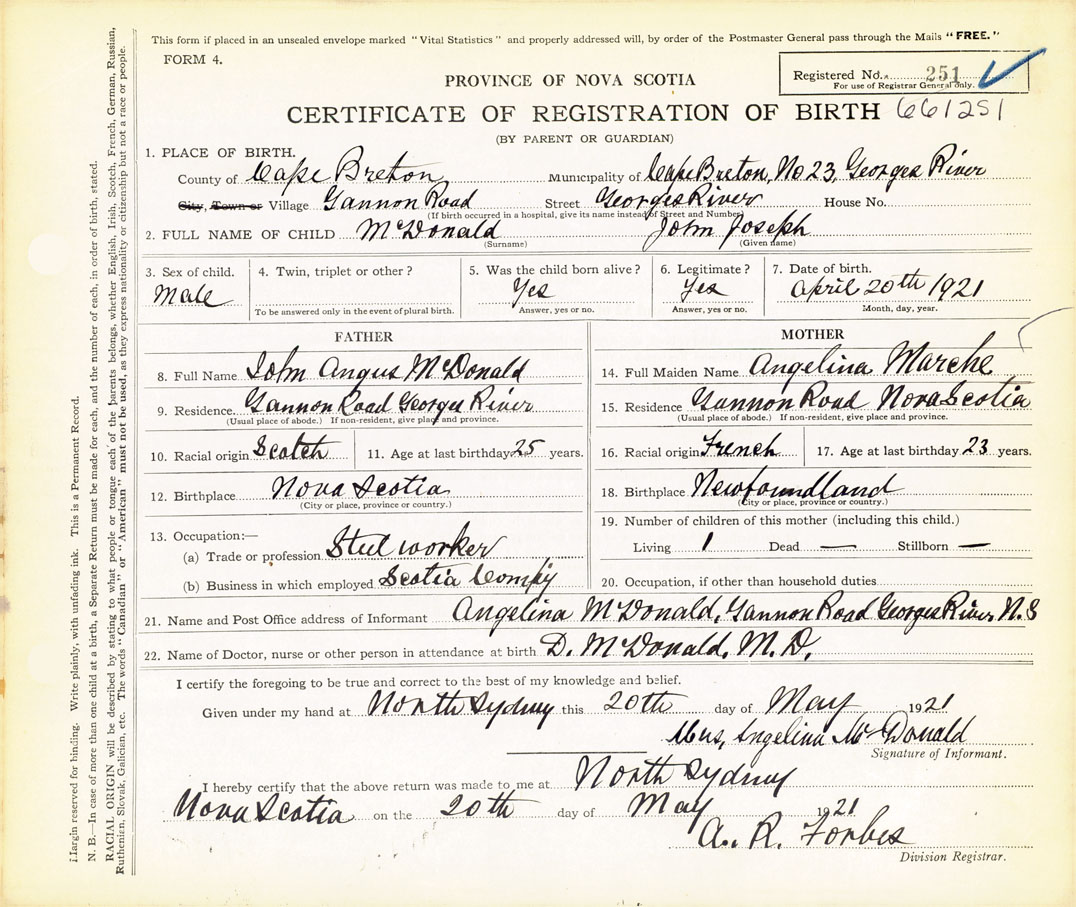 This form if placed in an unsealed envelope marked "Vital Statistics" and properly addressed will, by order of the Postmaster General pass through the Mails "FREE."
FORM 4.
Registered No. 251
For use of Registrar General only.
PROVINCE OF NOVA SCOTIA
CERTIFICATE OF REGISTRATION OF BIRTH 661251
(BY PARENT OR GUARDIAN)
1. PLACE OF BIRTH.
County of Cape Breton Municipality of Cape Breton, No 23, Georges River
City, Town or Village Gannon Road Street Georges River House No.
(If birth occurred in a hospital, give its name instead of Street and Number)
2. FULL NAME OF CHILD McDonald John Joseph
(Surname) (Given name)
3. Sex of child. 4. Twin, triplet or other? 5. Was the child born alive? 6. Legitimate? 7. Date of birth.
Male Yes Yes April 20th 1921
To be answered only in the event of plural birth. Answer, yes or no. Answer, yes or no. Month, day, year.
FATHER
8. Full Name John Angus McDonald
9. Residence Gannon Road Georges River
(Usual place of abode.) If non-resident, give place and province.
10. Racial origin Scotch 11. Age at last birthday 25 years.
12. Birthplace Nova Scotia
(City or place, province or country.)
13. Occupation:—
(a) Trade or profession Steel worker
(b) Business in which employed Scotia Compy
MOTHER
14. Full Maiden Name Angelina Marche
15. Residence Gannon Road Nova Scotia
(Usual place of abode.) If non-resident, give place and province.
16. Racial origin French 17. Age at last birthday 23 years.
18. Birthplace Newfoundland
(City or place, province or country.)
19. Number of children of this mother (including this child.)
Living 1 Dead — Stillborn —
20. Occupation, if other than household duties
21. Name and Post Office address of Informant Angelina McDonald, Gannon Road Georges River N.S
22. Name of Doctor, nurse or other person in attendance at birth D. McDonald, M. D.
I certify the foregoing to be true and correct to the best of my knowledge and belief.
Given under my hand at North Sydney this 20th day of May 1921
Mrs, Angelina McDonald
Signature of Informant.
I hereby certify that the above return was made to me at North Sydney
Nova Scotia on the 20th day of May 1921
A. R. Forbes
Division Registrar.
Margin reserved for binding. Write plainly, with unfading ink. This is a Permanent Record.
N. B.—In case of more than one child at a birth, a Separate Return must be made for each, and the number of each, in order of birth, stated.
RACIAL ORIGIN will be described by stating to what people or tongue each of the parents belongs, whether English, Irish, Scotch, French, German, Russian,
Ruthenian, Slovak, Galician, etc. The words "Canadian" or "American" must not be used, as they express nationality or citizenship but not a race or people.